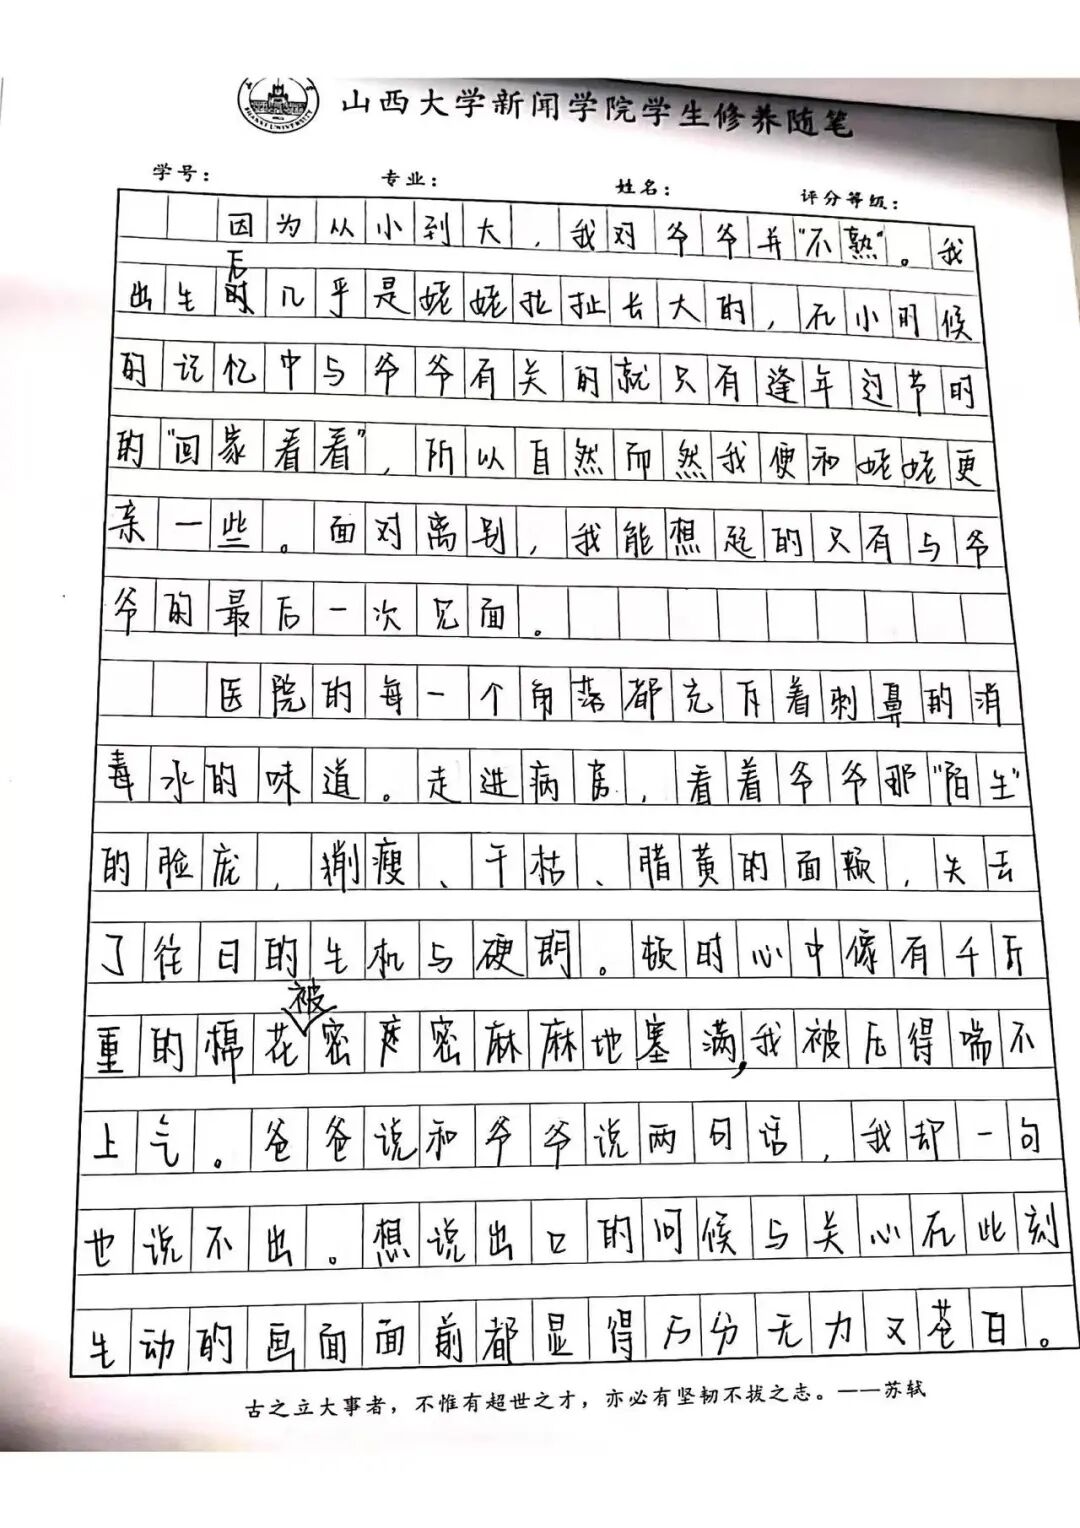 山西大学新闻学院学生修养随笔
学号： 专业： 姓名： 评分等级：
因为从小到大，我对爷爷并“不熟”。我
出生后几乎是姥姥拉扯长大的，在小时候
的记忆中与爷爷有关的就只有逢年过节时
的“回家看看”，所以自然而然我便和姥姥更
亲一些。面对离别，我能想起的只有与爷
爷的最后一次见面。
医院的每一个角落都充斥着刺鼻的消
毒水的味道。走进病房，看着爷爷那“陌生”
的脸庞，瘦、干枯、腊黄的面颊，失去
了往日的生机与硬朗。顿时心中像有千斤
重的棉花被密密麻麻地塞满，我被压得喘不
上气。爸爸说和爷爷说两句话，我却一句
也说不出。想说出口的问候与关心在此刻
生动的画面面前都显得万分无力又苍白。
古之立大事者，不惟有超世之才，亦必有坚韧不拔之志。——苏轼